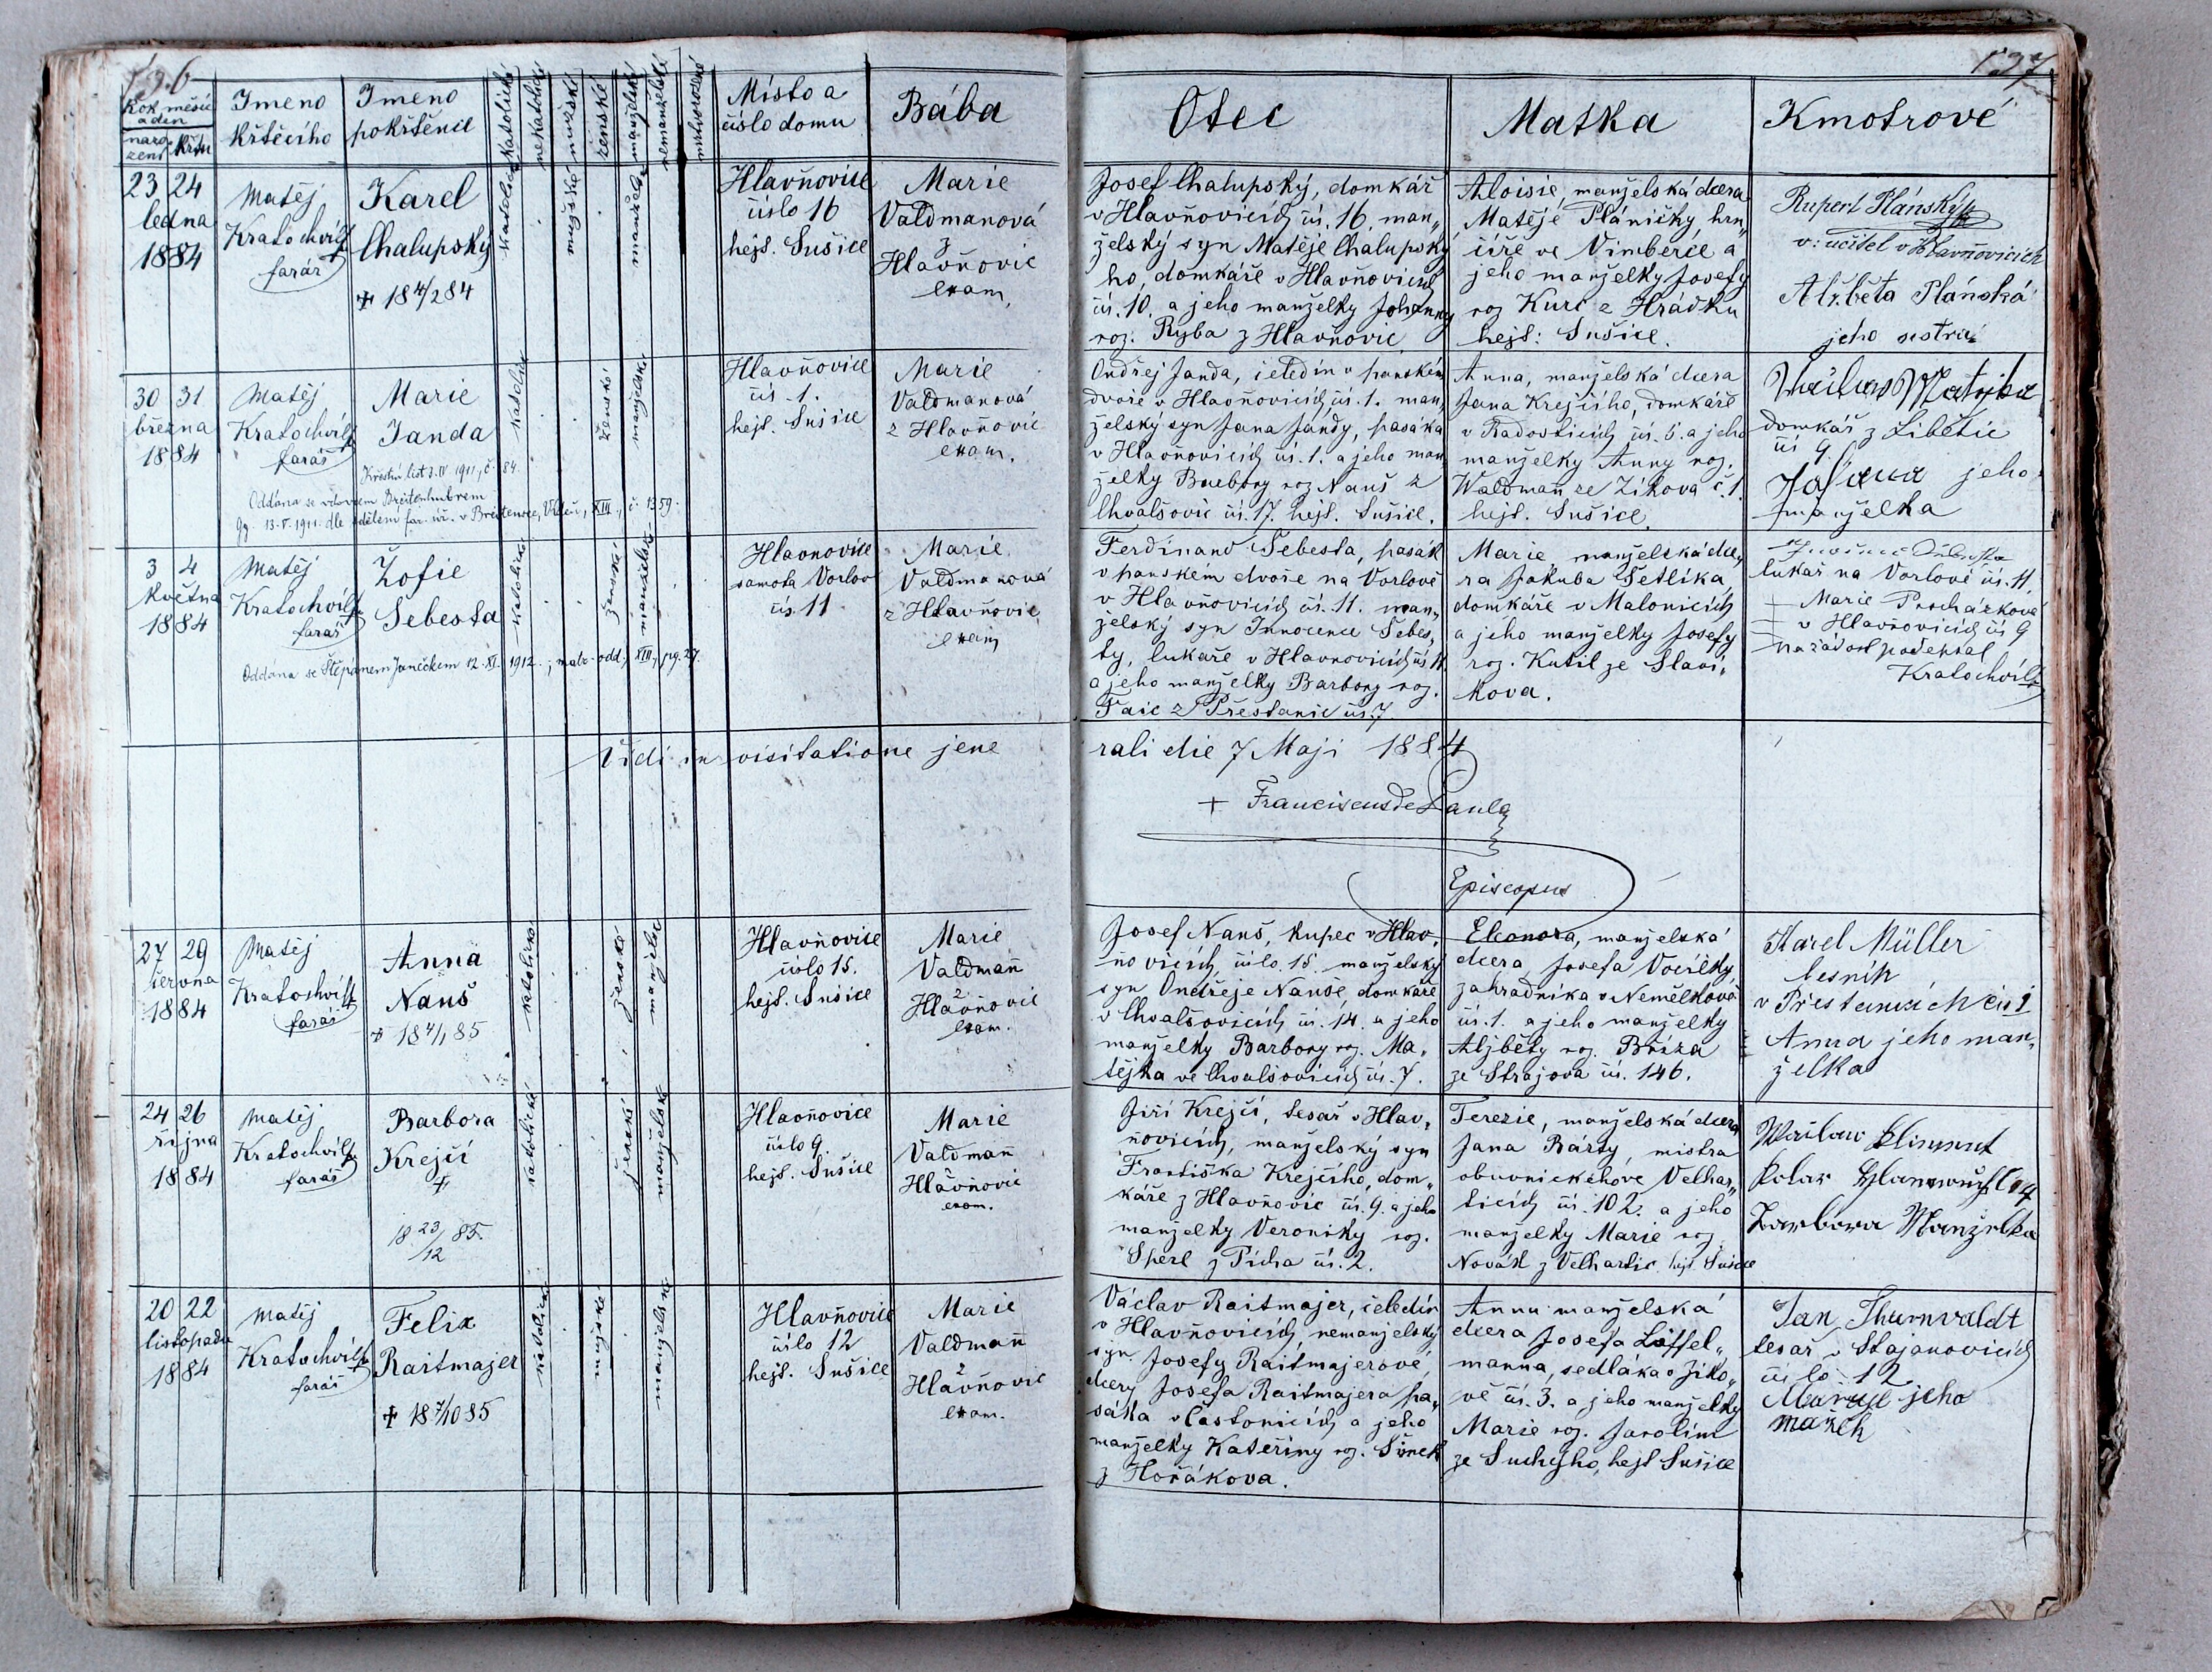 136
Rok měsíc
a den
naro
zení
křtu
Jmeno
křtěcího
Jmeno
pokřtěnce
katolické
nekatolické
mužské
ženské
manželské
nemanželské
mrtvorozené
Místo a
číslo domu
Bába
23 24
ledna
1884
Matěj
Kratochvíl
farář
Karel
Chalupský
✝ 18 4/2 84
katolické
mužské
manželské
Hlavňovice
číslo 16
hejt. Sušice
Marie
Valdmanová
z
Hlavňovic
exam.
30 31
března
1884
Matěj
Kratochvíl
farář
Marie
Janda
Křestní list 3. IV. 1911, č. 84.
Oddána se vdovcem Breitenhubrem
13. V. 1911. dle sdělení far. úř. v XIII, č. 1359.
katolické
ženské
manželské
Hlavňovice
čís. 1.
hejt. Sušice
Marie
Valdmanová
z Hlavňovic
exam.
3 4
května
1884
Matěj
Kratochvíl
farář
Žofie
Šebesta
Oddána se Štěpánem Janečkem 12. XI. 1912.; matr. odd. XIII, pg. 27.
katolické
ženské
manželské
Hlavnovice
samota Vorlov
čís. 11
Marie
Valdmanová
z Hlavňovic
exam
Vidi in visitatione jene
27 29
června
1884
Matěj
Kratochvíl
farář
Anna
Nauš
✝ 18 4/1 85
katolické
ženské
manželské
Hlavňovice
číslo 15.
hejt. Sušice
Marie
Valdmann
z
Hlavňovic
exam.
24 26
října
1884
Matěj
Kratochvíl
farář
Barbora
Krejčí
✝
18 23/12 85.
katolické
ženské
manželské
Hlavňovice
číslo 9.
hejt. Sušice
Marie
Valdmann
z
Hlavňovic
exam.
20 22
listopadu
1884
Matěj
Kratochvíl
farář
Felix
Raitmajer
✝ 18 7/10 85
katolické
mužské
manželské
Hlavňovice
číslo 12
hejt. Sušice
Marie
Valdmann
z
Hlavňovic
exam.
137
Otec
Matka
Kmotrové
Josef Chalupský, domkář
v Hlavňovicích čís. 16. man„
želský syn Matěje Chalupské
ho, domkáře v Hlavňovicích
čís. 10. a jeho manželky Johanny
roz. Ryba z Hlavňovic
Aloisie, manželská dcera
Matěje Pláničky, hrn„
číře ve Vimberce a
jeho manželky Josefy
roz Kurc z Hrádku
hejt: Sušice.
Rupert Plánský
v: učitel v Hlavňovicích
Alžběta Plánská
jeho sestra
Ondřej Janda, čeledín v panském
dvoře v Hlavňovicích čís. 1. man„
želský syn Jana Jandy, pasáka
v Hlavňovicích čís. 1. a jeho man
želky Barbory roz Nauš z
Chvalšovic čís. 17. hejt. Sušice.
Anna, manželská dcera
Jana Krejčího, domkáře
v Radosticích čís. 5. a jeho
manželky Anny roz.
Waldmann ze Zikova č. 1.
hejt. Sušice.
domkář z Libětic
čís 9.
jeho
manželka
Ferdinand Šebesta, pasák
v panském dvoře na Vorlově
v Hlavňovicích čís. 11. man„
želský syn Innocence Šebes„
ty, lukaře v Hlavnovicích čís 11
a jeho manželky Barbory roz.
Faic z Přestanic čís. 7
Marie manželská dce„
ra Jakuba Šetlíka,
domkáře v Malonicích
a jeho manželky Josefy
roz. Kutil ze Slaví„
kova.
lukař na Vorlově čís. 11.
Marie Procházková
v Hlavňovicích čís 9
na žádost podepsal
Kratochvíl
rali die 7 Maji 1884
+ Franciscus de Paula
Episcopus
Josef Nauš, kupec v Hlav„
ňovicích, číslo 15. manželský
syn Ondřeje Nauše, domkáře
v Chvalšovicích čís. 14. a jeho
manželky Barbory roz. Ma„
tějka ve Chvalšovicích čís. 7.
Eleonora, manželská
dcera Josefa Vocílky,
zahradníka v Nemělkově
čís. 1. a jeho manželky
Alžběty roz. Bříza
ze Strajova čís. 146.
Karel Müller
lesník
v Přestanicích čís 1
Anna jeho man„
želka
Jiří Krejčí, tesař v Hlav„
ňovicích, manželský syn
Františka Krejčího, dom„
káře z Hlavňovic čís. 9. a jeho
manželky Veroniky roz.
Sperl z Picha čís. 2.
Terezie, manželská dcera
Jana Bárty, mistra
obuvnického ve Velhar„
ticích čís. 102. a jeho
manželky Marie roz.
Novák z Velhartic hejt. Sušice
Barbora Manželka
Václav Raitmajer, čeledín
v Hlavňovicích, nemanželský
syn Josefy Raitmajerové,
dcery Josefa Raitmajera pa„
sáka v Častonicích a jeho
manželky Kateřiny roz. Šimek
z Hořákova.
Anna manželská
dcera Josefa Löffel„
manna, sedláka v Ziko„
vě čís. 3. a jeho manželky
Marie roz. Jarolím
ze Suchýho, hejt Sušice
Jan Thurnvaldt
tesař v Stajanovicích
číslo 12
jeho